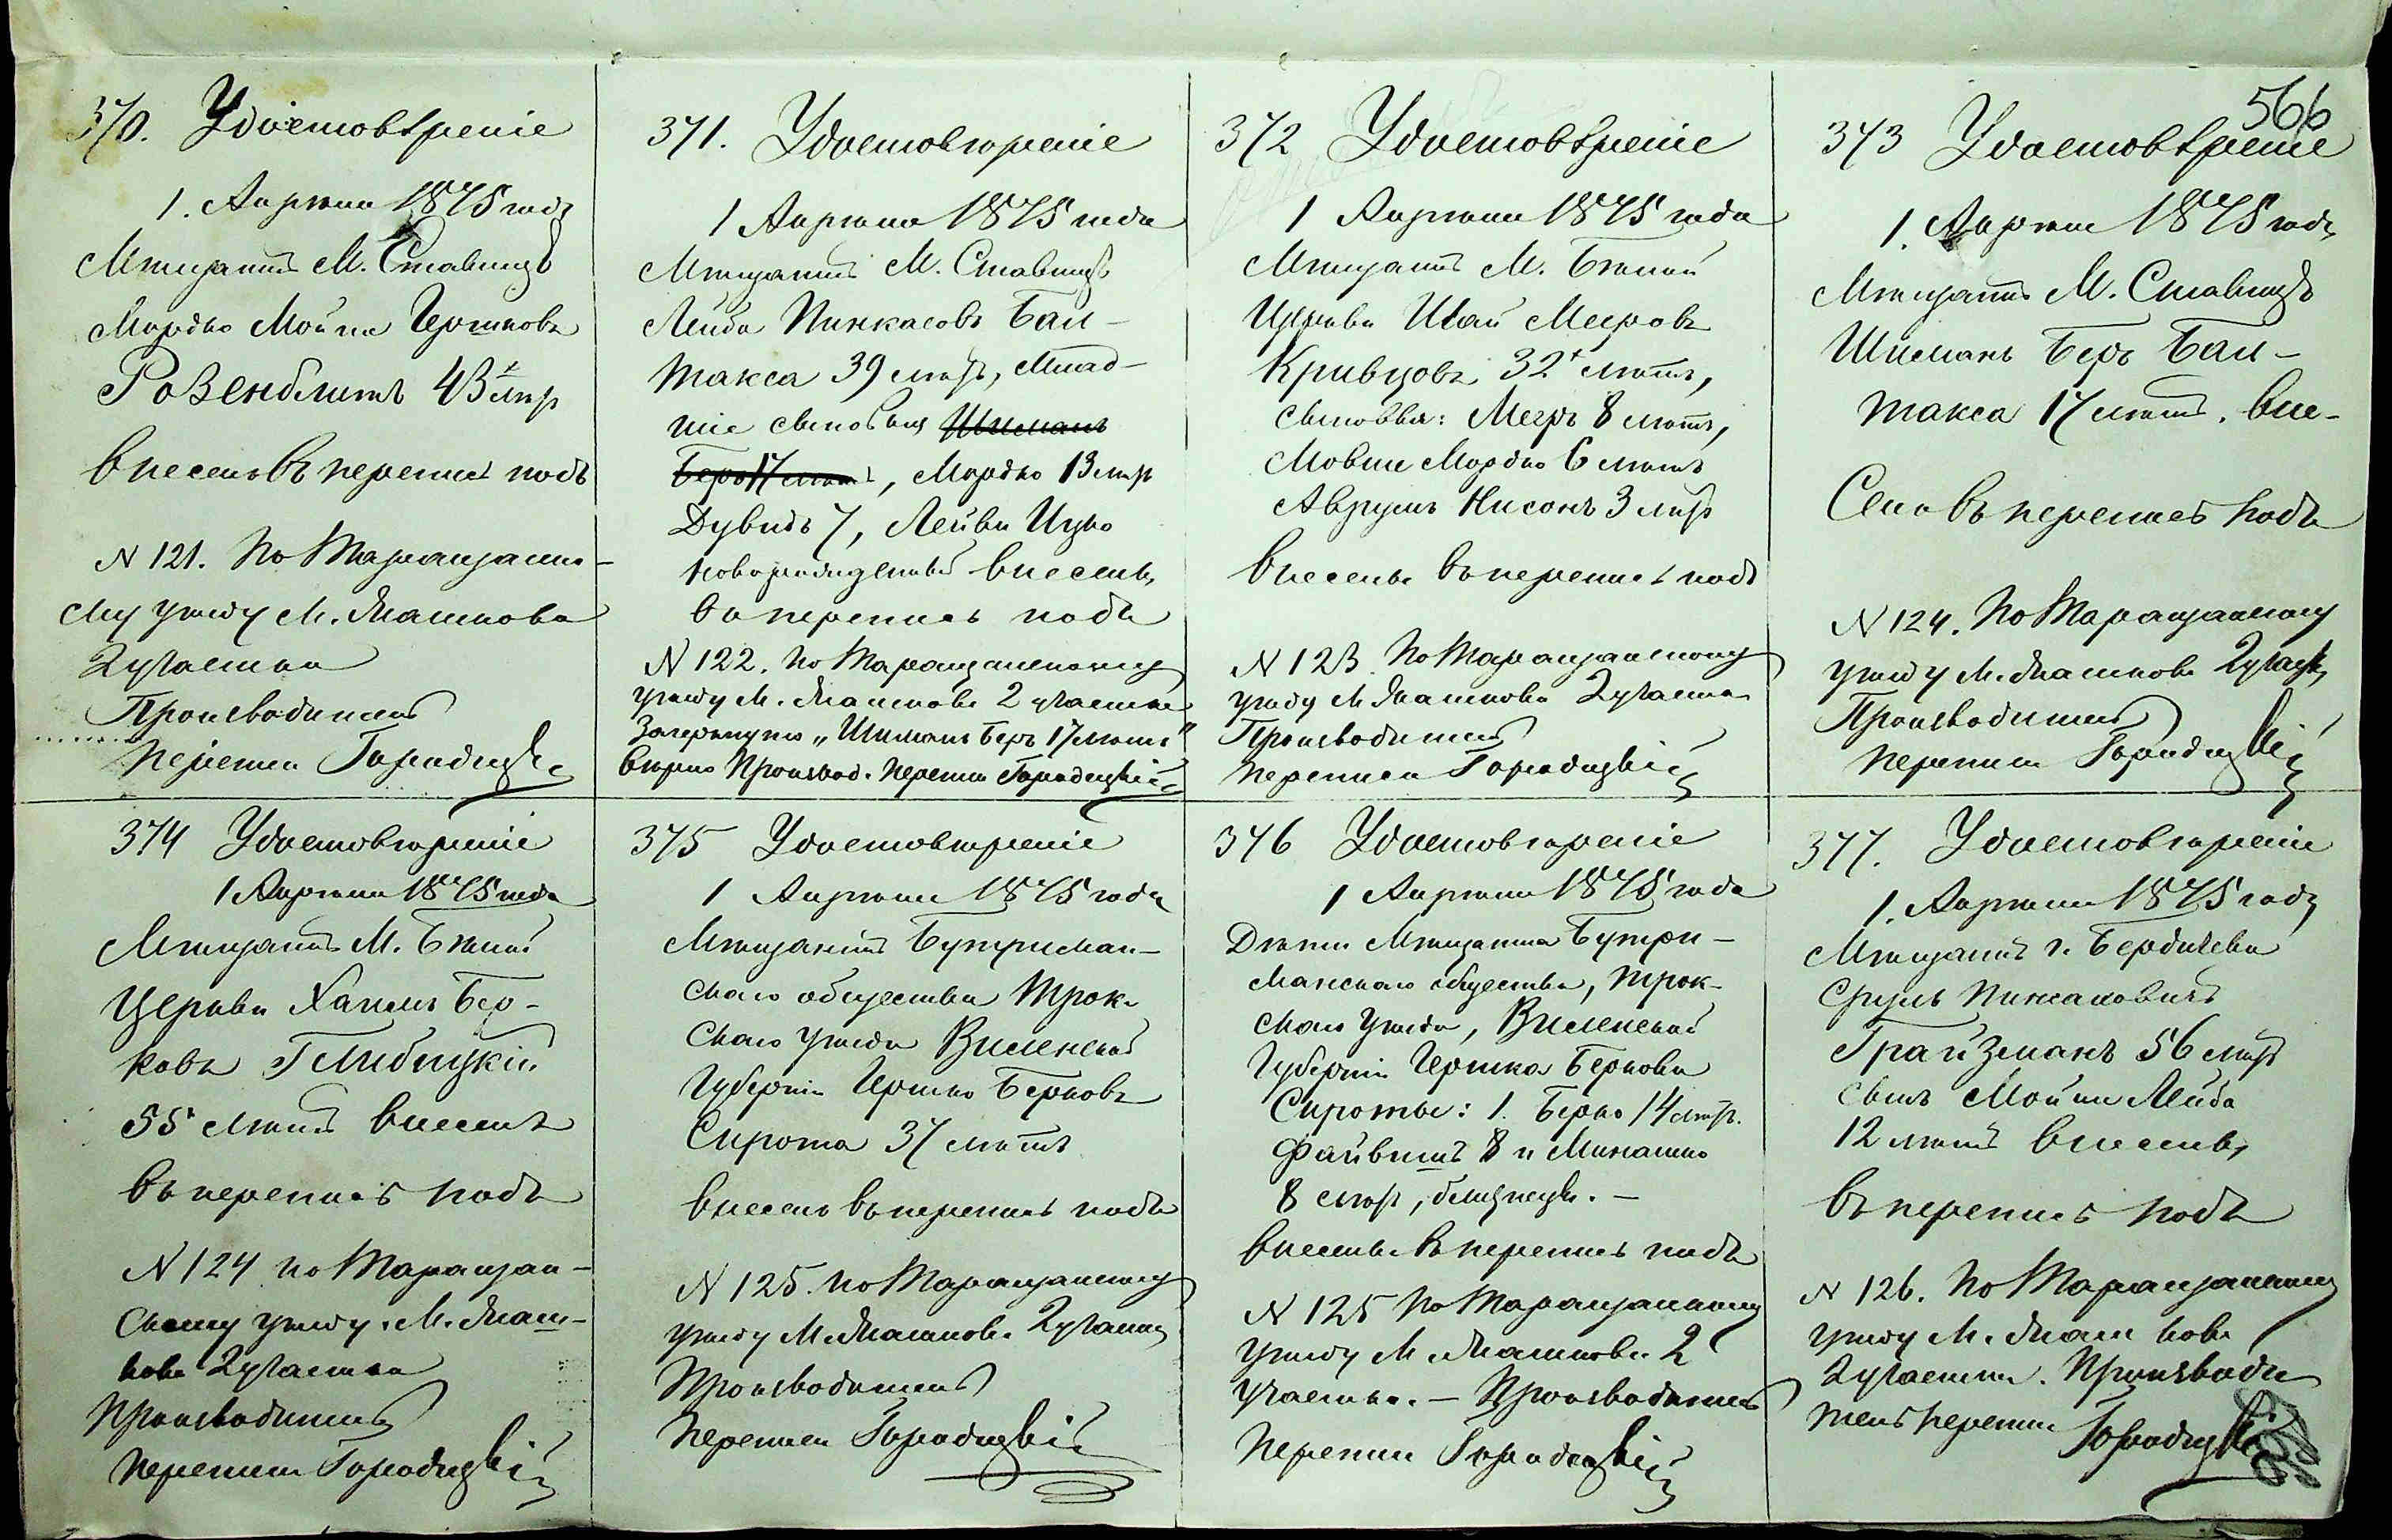 566
370. Удостовѣреніе
1. Апрѣля 1875 года
Мѣщанинъ М. Ставищъ
Мордко Мойше Гершковъ
Розенблитъ 43 лѣтъ
внесенъ въ перепись подъ
N 121. по Таращанско-
му уѣзду М.
2 участка
Производитель
переписи Городецкій
371. Удостовѣреніе
1 Апрѣля 1875 года
Мѣщанинъ М. Ставищъ
Лейба Пинкасовъ Бан-
такса 39 лѣтъ, Млад-
шіе сыновья Шиманъ
Беръ 17 лѣтъ, Мордко 13 лѣтъ
Дувидъ 7, Лейви Ицко
новорожденный внесены
въ перепись подъ
N 122. по Таращанскому
уѣзду М. 2 участка
Зачеркнуто „Шиманъ Беръ 17 лѣтъ"
вѣрно Производ. переписи Городецкій
372 Удостовѣреніе
1 Апрѣля 1875 года
Мѣщанинъ М. Бѣлой
Церкви Шая Мееровъ
Кривцовъ 32 лѣтъ,
сыновья: Меер 8 лѣтъ,
Мовше Мордко 6 лѣтъ
Аврумъ Нисонъ 3 лѣтъ
внесены въ перепись подъ
N 123. по Таращанскому
уѣзду М. 2 участка
Производитель
переписи Городецкій
373 Удостовѣреніе
1. Апрѣля 1875 года
Мѣщанинъ М. Ставищъ
Шиманъ Беръ Бан-
такса 17 лѣтъ, вне-
сенъ въ перепись подъ
N 124. по Таращанскому
уѣзду М. 2 участка
Производитель
переписи Городецкій
374 Удостовѣреніе
1 Апрѣля 1875 года
Мѣщанинъ М. Бѣлой
Церкви Хаимъ Бер-
ковъ
55 лѣтъ внесенъ
въ перепись подъ
N 124 по Таращан-
скому уѣзду. М.
2 участка
Производитель
переписи Городецкій
375 Удостовѣреніе
1 Апрѣля 1875 года
Мѣщанинъ Бутриман-
скаго общества Трок-
скаго уѣзда Виленской
Губерніи Гершко Берковъ
Сирота 37 лѣтъ
внесенъ въ перепись подъ
N 125. по Таращанскому
уѣзду М. 2 участка
Производитель
переписи Городецкій
376 Удостовѣреніе
1 Апрѣля 1875 года
Дѣти Мѣщанина Бутри-
манскаго общества, Трок-
скаго уѣзда, Виленской
Губерніи Гершка Беркова
Сироты: 1. Берко 14 лѣтъ.
Файвишъ 8 и Минашко
8 лѣтъ, близнецы. —
внесены въ перепись подъ
N 125 по Таращанскому
уѣзду М. 2
участка. — Производитель
переписи Городецкій
377. Удостовѣреніе
1. Апрѣля 1875 года
Мѣщанинъ г. Бердичева
Сруль Пинхасовичъ
Грайзманъ 56 лѣтъ
сынъ Мойше Лейба
12 лѣтъ внесены
въ перепись подъ
N 126. по Таращанскому
уѣзду М.
2 участка. Производи
тель переписи Городецкій